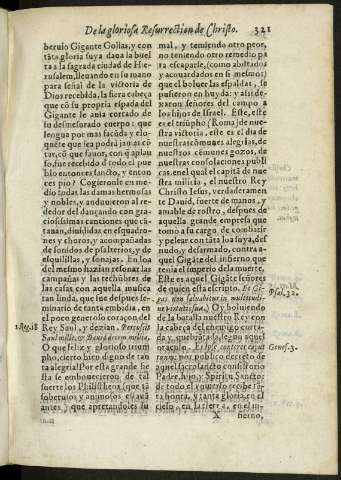 De la gloriosa Resurrection de Christo. 321
beruio Gigante Golias, y con
tãta gloria suya daua la buel
ta a la sagrada ciudad de Hie-
rusalem, lleuando en su mano
para señal de la victoria de
Dios recebida, la fiera cabeça
que cõ su propria espada del
Gigante le auia cortado de
su desmesurado cuerpo: que
lengua por mas facũda y elo-
quẽte que sea podrà jamas cõ
tar, cõ que fauor, con q̃ aplau
so, fue recebido d̃ todo el pue
blo entonces sancto, y enton
ces pio? Cogieronle en me-
dio todas las damas hermosas
y nobles, y anduuieron al re-
dedor del dançando con gra-
ciosissimas canciones que can
tauan, diuididas en esquadro-
nes y choros, y acompañadas
de sonidos de psalterios, y de
esquilillas, y sonajas. En loa
del mesmo hazian resonar las
campañas y las techũbres de
las casas con aquella musica
tan linda, que fue despues se-
minario de tanta embidia, en
el poco generoso coraçon del
Rey Saul, y dezian. Percussit
Saul mille, & Dauid decem millia.
1. Reg. 18
O que feliz y glorioso trium
pho, cierto bien digno de tan
ta alegria! Por esta grande fie
sta se embouecieron de tal
suerte los Philistheos (que tã
soberuios y animosos estauã
antes) y que apretandoles su
mal, y teniendo otro peor,
no teniendo otro remedio pa
ra escaparse, (como absortados
y acouardados en si mesmos)
que el boluer las espaldas, se
pusieron en huyda: y assi de-
xaron señores del campo a
los hijos de Israel. Este, este
es el triũpho (Roma) de nue-
stra victoria, este es el dia de
nuestras comunes alegrias, de
nuestros comunes gozos, de
nuestras consolaciones publi
cas, en el qual el capitã de nue
stra milicia, el nuestro Rey
Christo Iesus, verdaderamen
te Dauid, fuerte de manos, y
amable de rostro, despues de
aquella grande empresa que
tomò a su cargo de combatir
y pelear con tãta loa suya, des
nudo, y desarmado, contra a-
quel Gigãte del infierno que
tenia el imperio de la muerte.
Este es aquel Gigãte señores
de quien està escripto. Et Gi-
gas non saluabitur in multitudi-
ne virtutis suæ. Oy boluiendo
Psal. 32.
de la batalla nuestro Rey con
la cabeça del enemigo corta-
da, y quebrãtada, segun aquel
oraculo. Et ipse conteret caput
Genes. 3.
tuum; por publico decreto de
aquel sacrosancto consistorio
Padre, hijo, y Spiritu Sancto:
de todo el vniuerso recibe tã-
ta honra, y tanta gloria en el
cielo, en la tierra, en el in-
X fierno,